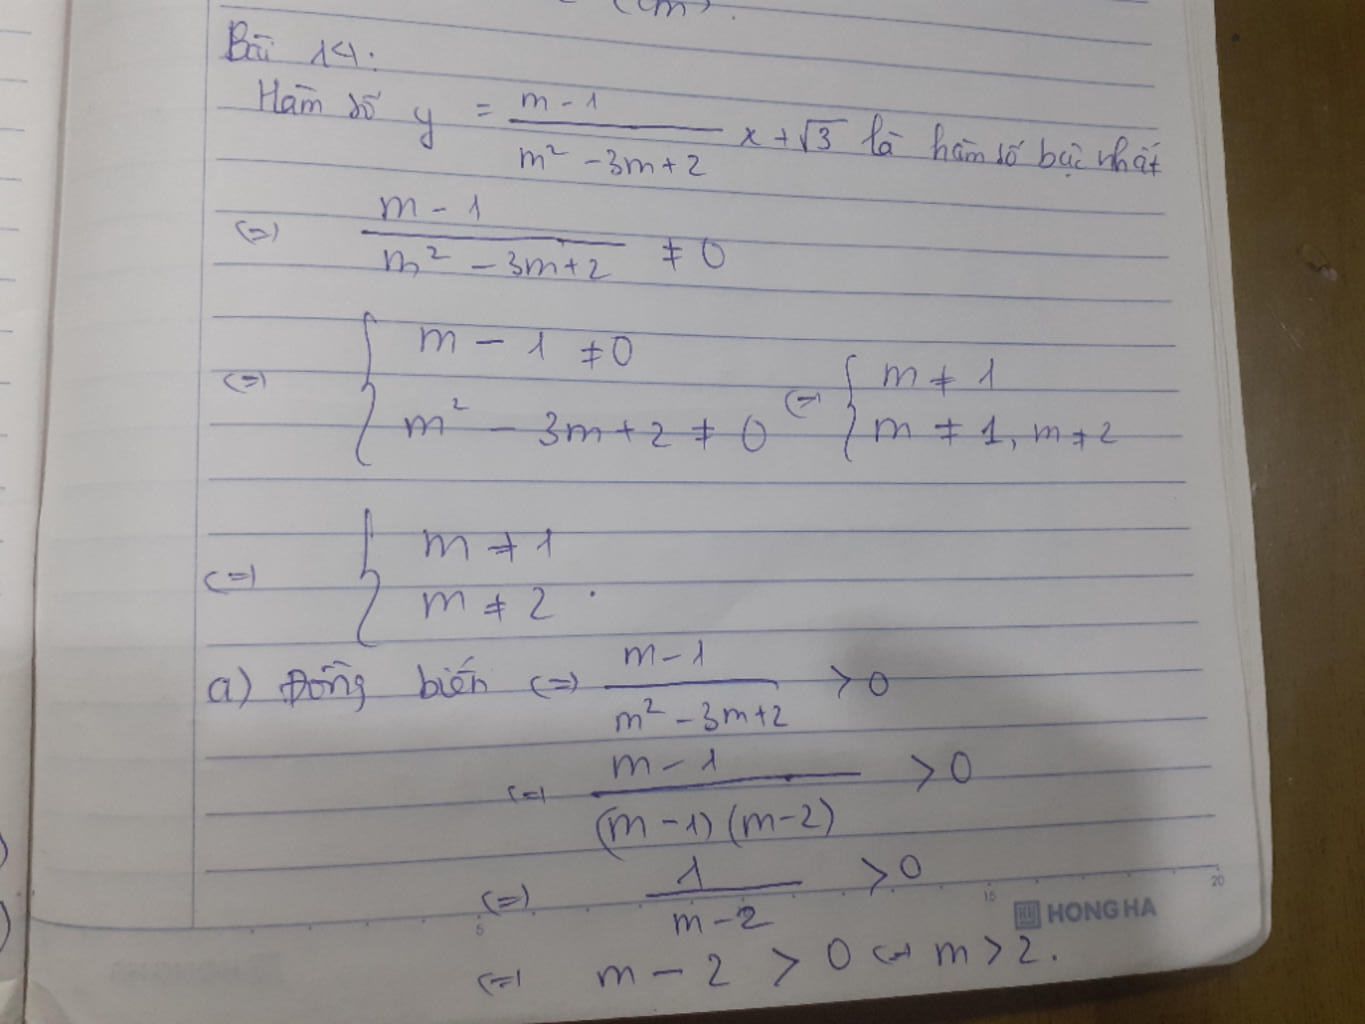 (cm).
Bài 14.
Hàm số y = \frac{m-1}{m² - 3m + 2} x + √3 là hàm số bậc nhất
(=) \frac{m-1}{m² - 3m + 2} ≠ 0
(=) { m - 1 ≠ 0
m² - 3m + 2 ≠ 0 (=) { m ≠ 1
m ≠ 1, m ≠ 2
(=) { m ≠ 1
m ≠ 2.
a) Đồng biến (=) \frac{m-1}{m² - 3m + 2} > 0
(=) \frac{m-1}{(m-1)(m-2)} > 0
(=) \frac{1}{m-2} > 0
(=) m - 2 > 0 (=) m > 2.
5 15 20
HONG HA